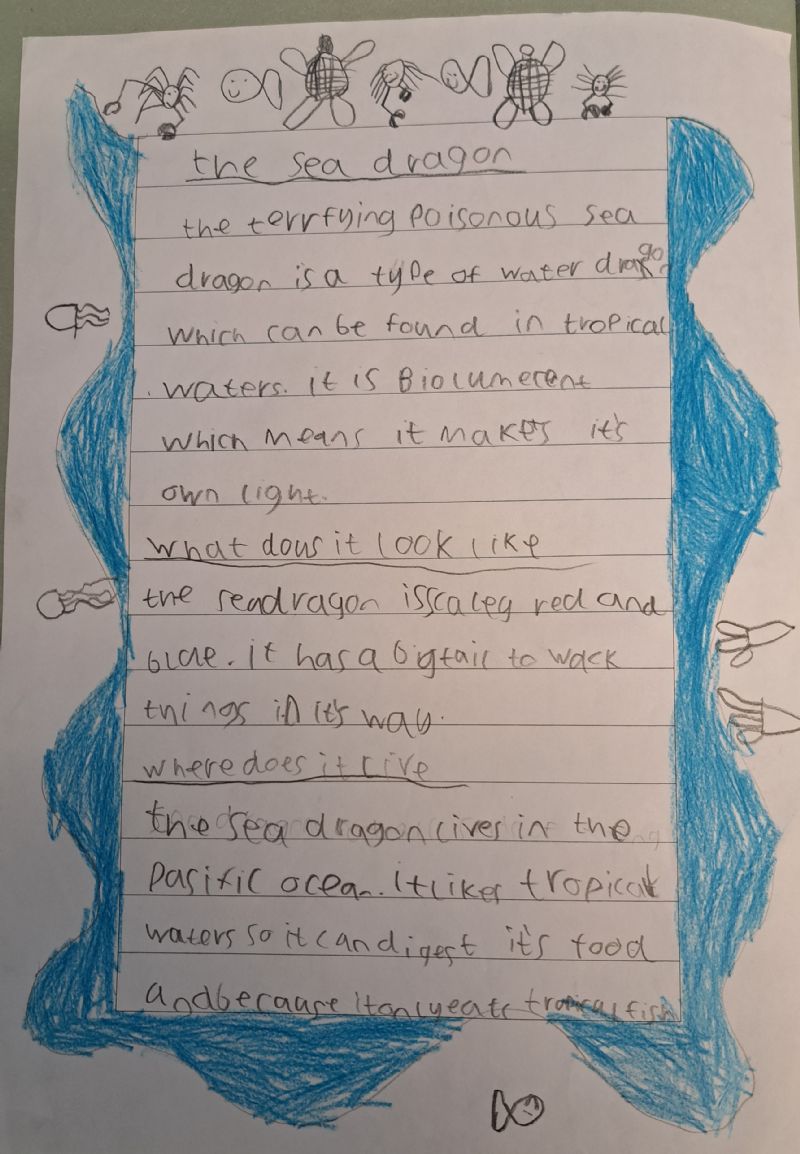 the sea dragon
the terrfying poisonous sea
dragon is a type of water dragon
which can be found in tropical
waters. it is Biolumerent
which means it makes it's
own light.
what dous it look like
the seadragon is scaley red and
blue. it has a big tail to wack
things in it's way.
where does it live
the sea dragon lives in the
Pasific ocean. it likes tropical
waters so it can digest it's food
and because it only eats tropical fish